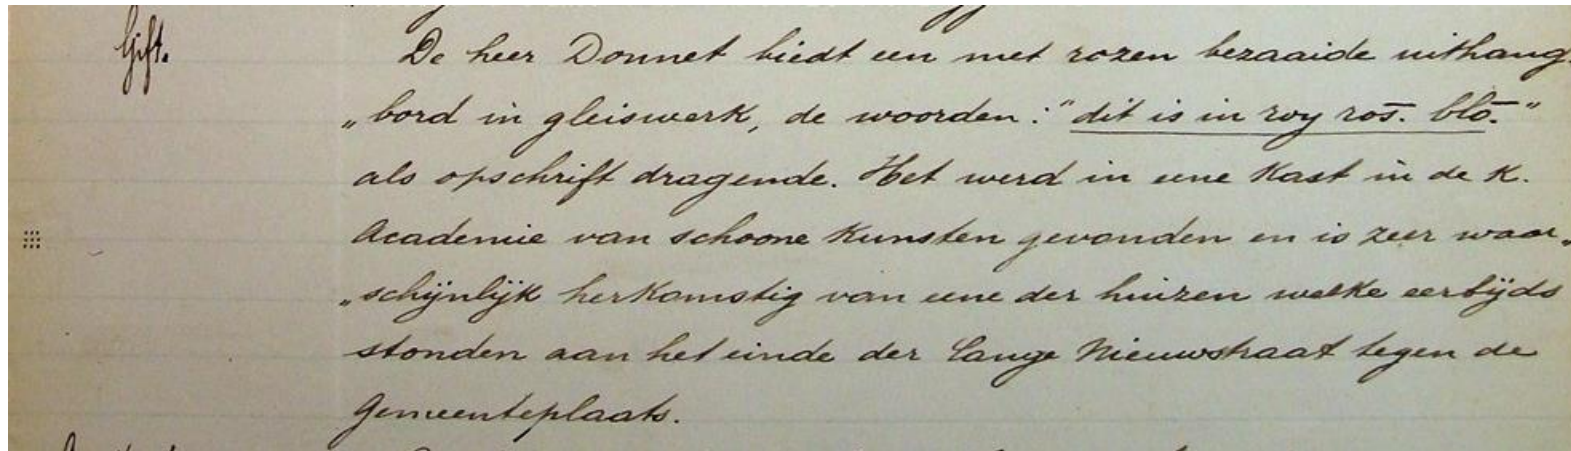 Gift.
De heer Donnet biedt een met rozen bezaaide uithang-
„bord in gleiswerk, de woorden: “dit is in roy ros̄. blō.”
als opschrift dragende. Het werd in eene Kast in de K.
Academie van schoone Kunsten gevonden en is zeer waar„
„schijnlijk herkomstig van eene der huizen welke eertijds
stonden aan het einde der Lange Nieuwstraat tegen de
Gemeenteplaats.